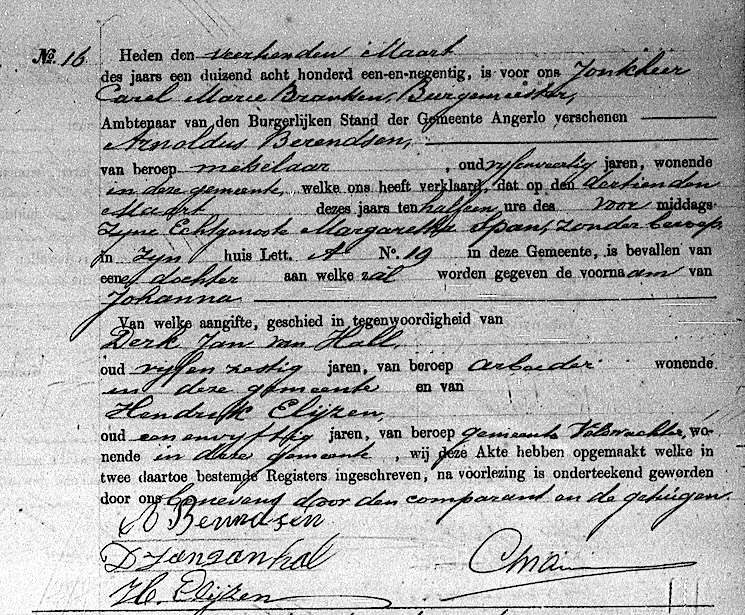 No. 16 Heden den veertienden Maart
des jaars een duizend acht honderd een-en-negentig, is voor ons Jonkheer
Carel Marie Brantsen, Burgemeester,
Ambtenaar van den Burgerlijken Stand der Gemeente Angerlo verschenen
Arnoldus Berendsen,
van beroep metselaar, oud vyfenveertig jaren, wonende
in deze gemeente, welke ons heeft verklaard, dat op den dertienden
Maart dezes jaars ten half een, ure des voor middags
Zyne Echtgenoote Margaretha Span, zonder beroep,
in Zyn huis Lett. A No. 19 in deze Gemeente, is bevallen van
eene dochter aan welke zal worden gegeven de voornaam van
Johanna
Van welke aangifte, geschied in tegenwoordigheid van
Derk Jan van Hall,
oud vyf en zestig jaren, van beroep arbeider wonende
in deze gemeente en van
Hendrik Elijzen,
oud een en vyftig jaren, van beroep gemeente Veldwachter, wo-
nende in deze gemeente, wij deze Akte hebben opgemaakt welke in
twee daartoe bestemde Registers ingeschreven, na voorlezing is onderteekend geworden
door ons benevens door den comparant en de getuigen.
A Berendsen
D J van hal
H. Elijzen